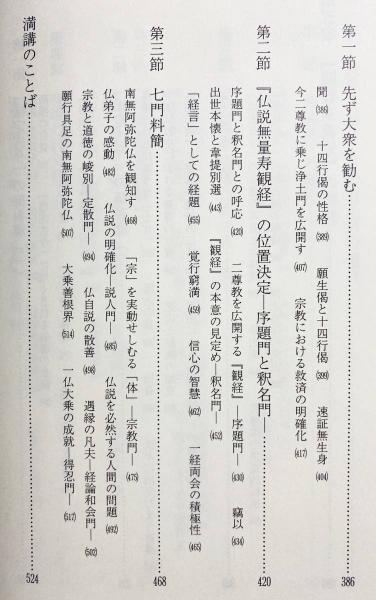 第一節 先ず大衆を勧む………386
聞(386) 十四行偈の性格(389) 願生偈と十四行偈(399) 速証無生身(404)
今二尊教に乗じ浄土門を広開す(407) 宗教における救済の明確化(417)
第二節 『仏説無量寿観経』の位置決定―序題門と釈名門―………420
序題門と釈名門との呼応(420) 二尊教を広開する『観経』―序題門―(430) 竊以(434)
出世本懐と韋提別選(443) 『観経』の本意の見定め―釈名門―(452)
「経言」としての経題(455) 覚行窮満(459) 信心の智慧(462) 一経両会の積極性(465)
第三節 七門料簡………468
南無阿弥陀仏を観知す(468) 「宗」を実動せしむる「体」―宗教門―(475)
仏弟子の感動(482) 仏説の明確化―説人門―(485) 仏説を必然する人間の問題(492)
宗教と道徳の峻別―定散門―(494) 仏自説の散善(498) 遇縁の凡夫―経論和会門―(502)
願行具足の南無阿弥陀仏(507) 大乗善根界(514) 一仏大乗の成就―得忍門―(517)
満講のことば………524